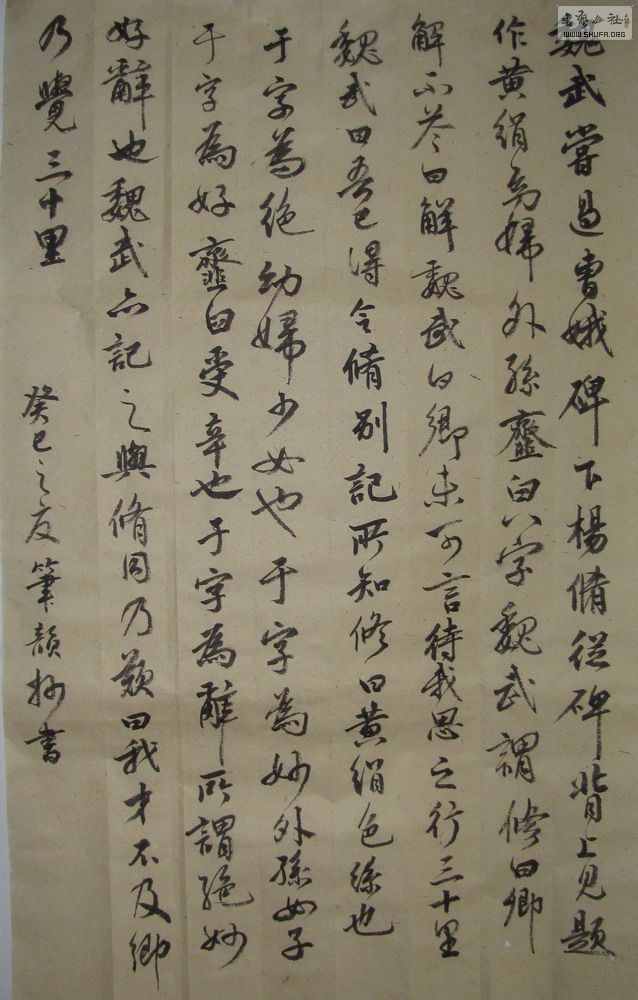 魏武嘗過曹娥碑下楊脩從碑背上見題
作黄絹幼婦外孫齏臼八字魏武謂修曰卿
解不答曰解魏武曰卿未可言待我思之行三十里
魏武曰吾已得令脩別記所知修曰黄絹色絲也
于字為絶幼婦少女也于字為妙外孫女子
于字為好齏臼受辛也于字為辭所謂絶妙
好辭也魏武亦記之與脩同乃歎曰我才不及卿
乃覺三十里
癸巳之夏筆韻抄書
書藝公社
WWW.SHUFA.ORG